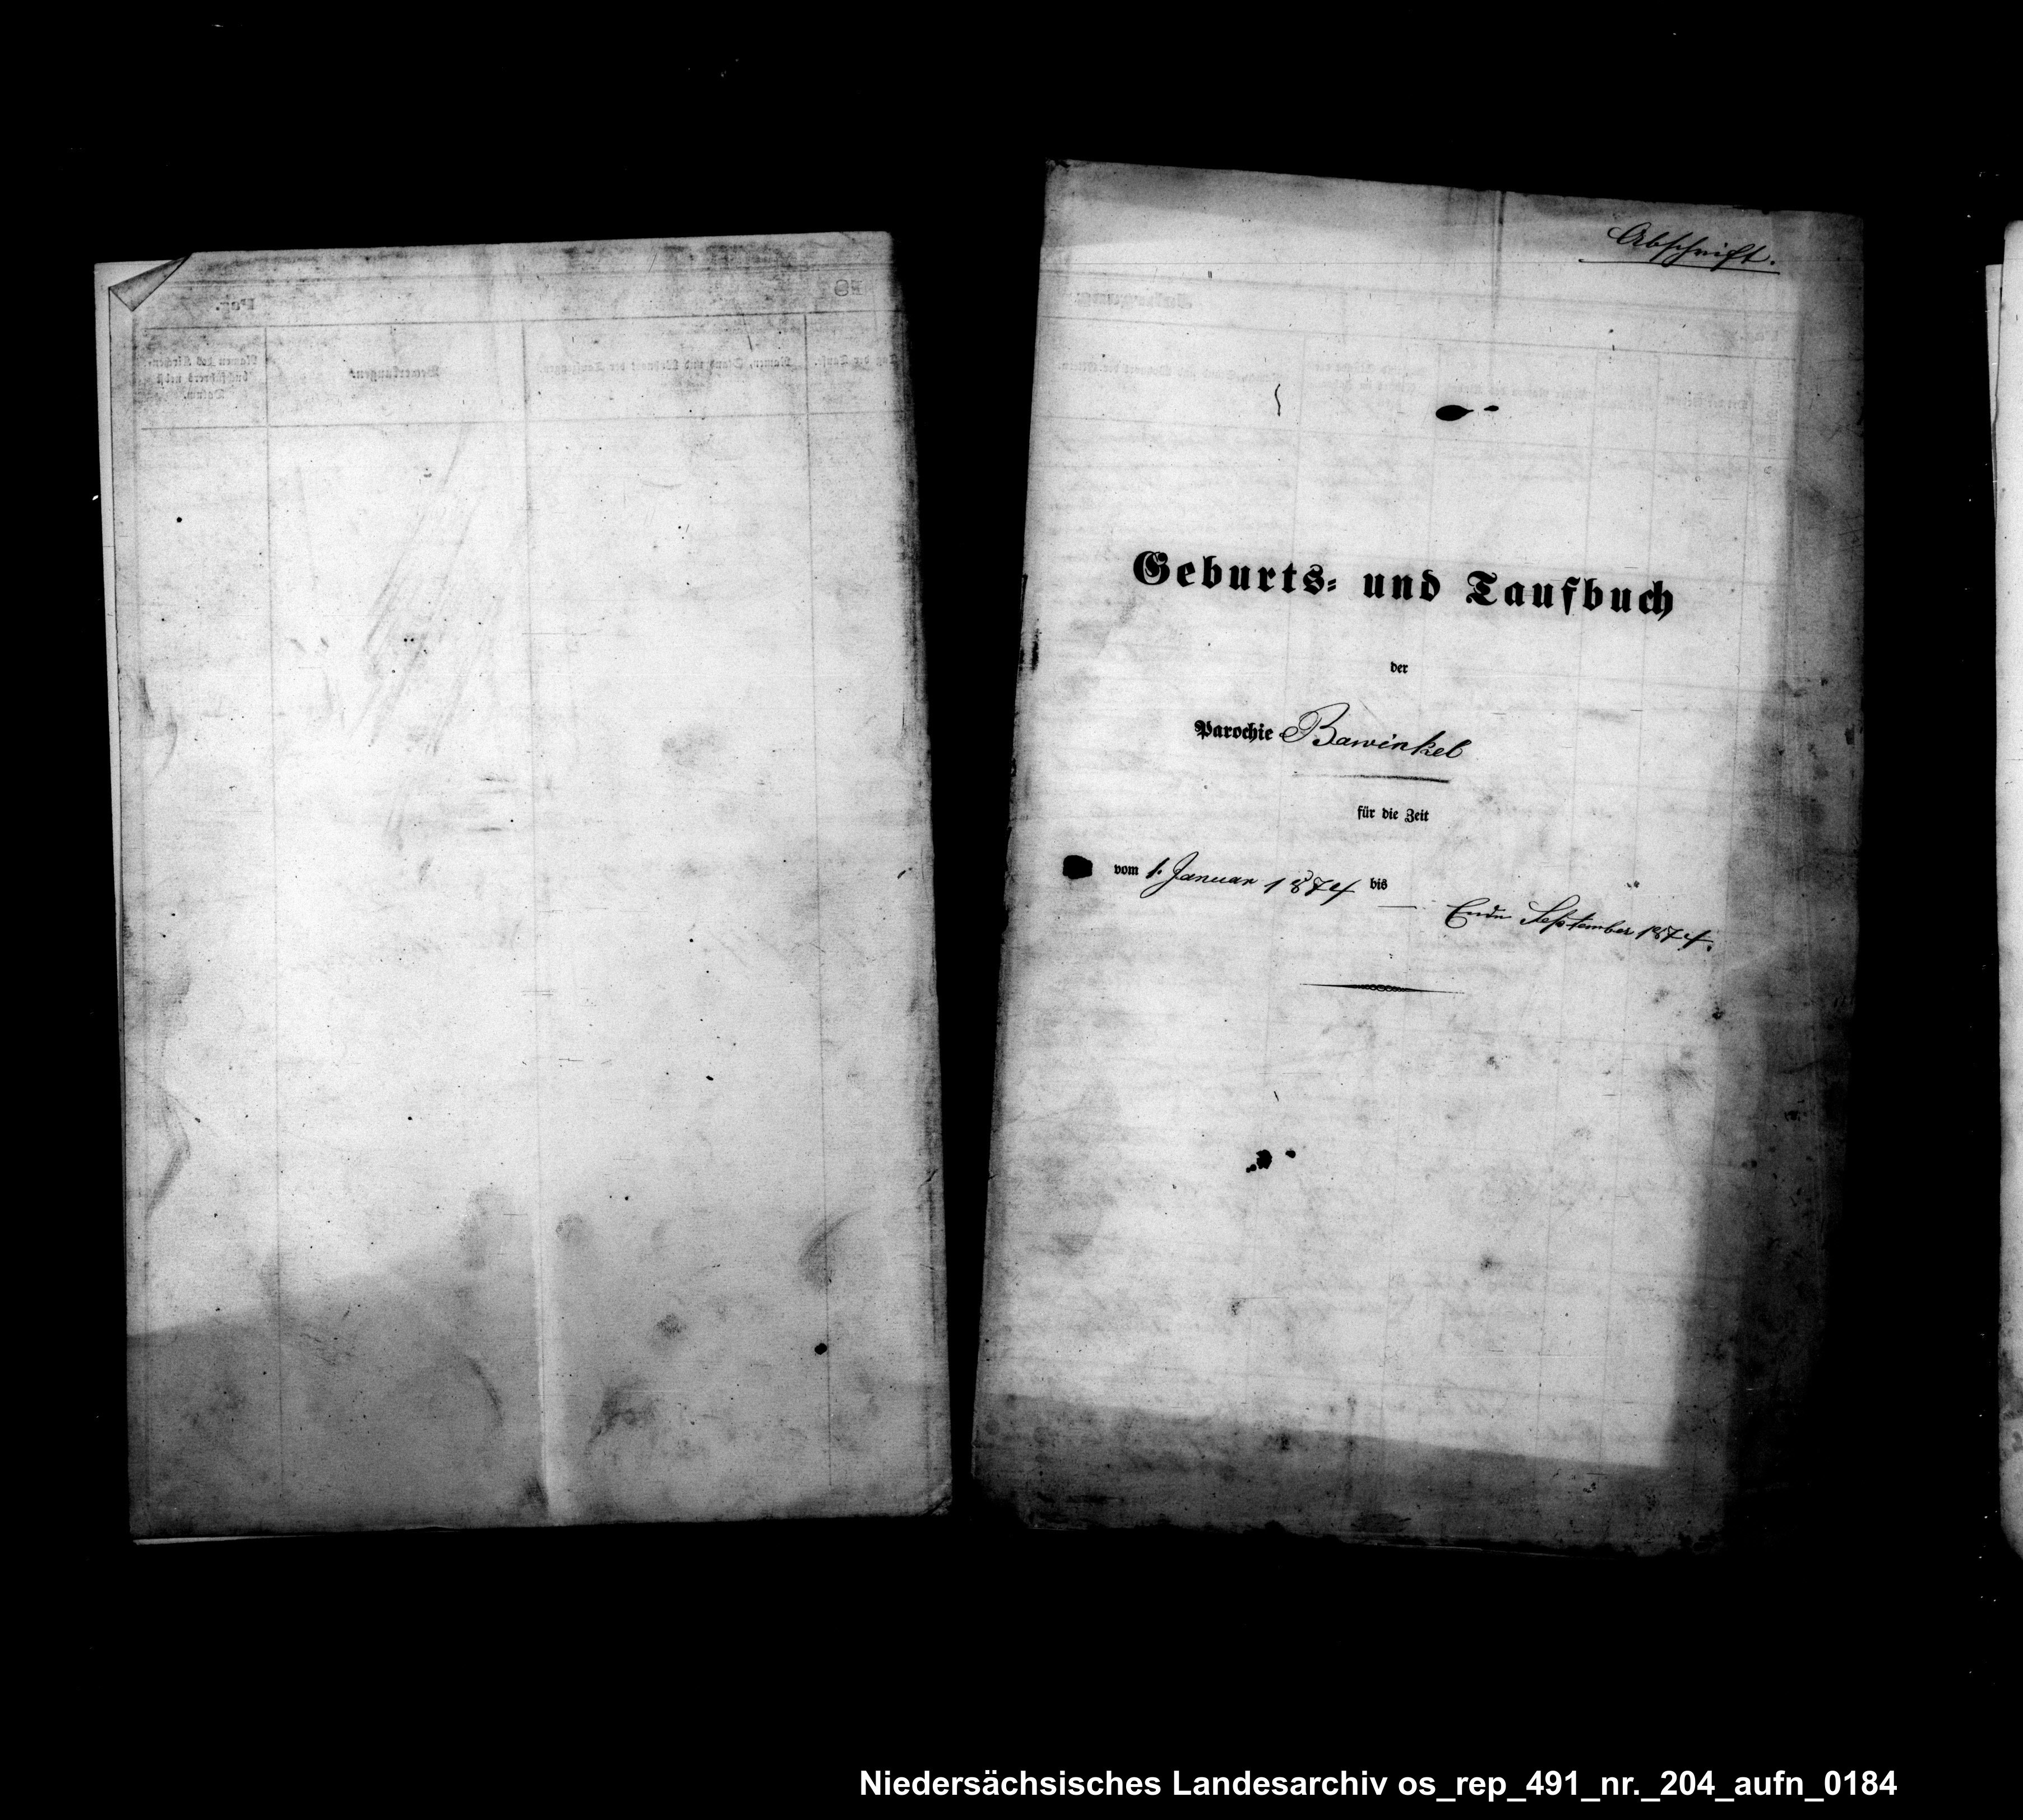 Abschrift.
Geburts- und Taufbuch
der
Parochie Bawinkel
für die Zeit
vom 1. Januar 1874 bis
Ende September 1874.
Niedersächsisches Landesarchiv os_rep_491_nr._204_aufn_0184